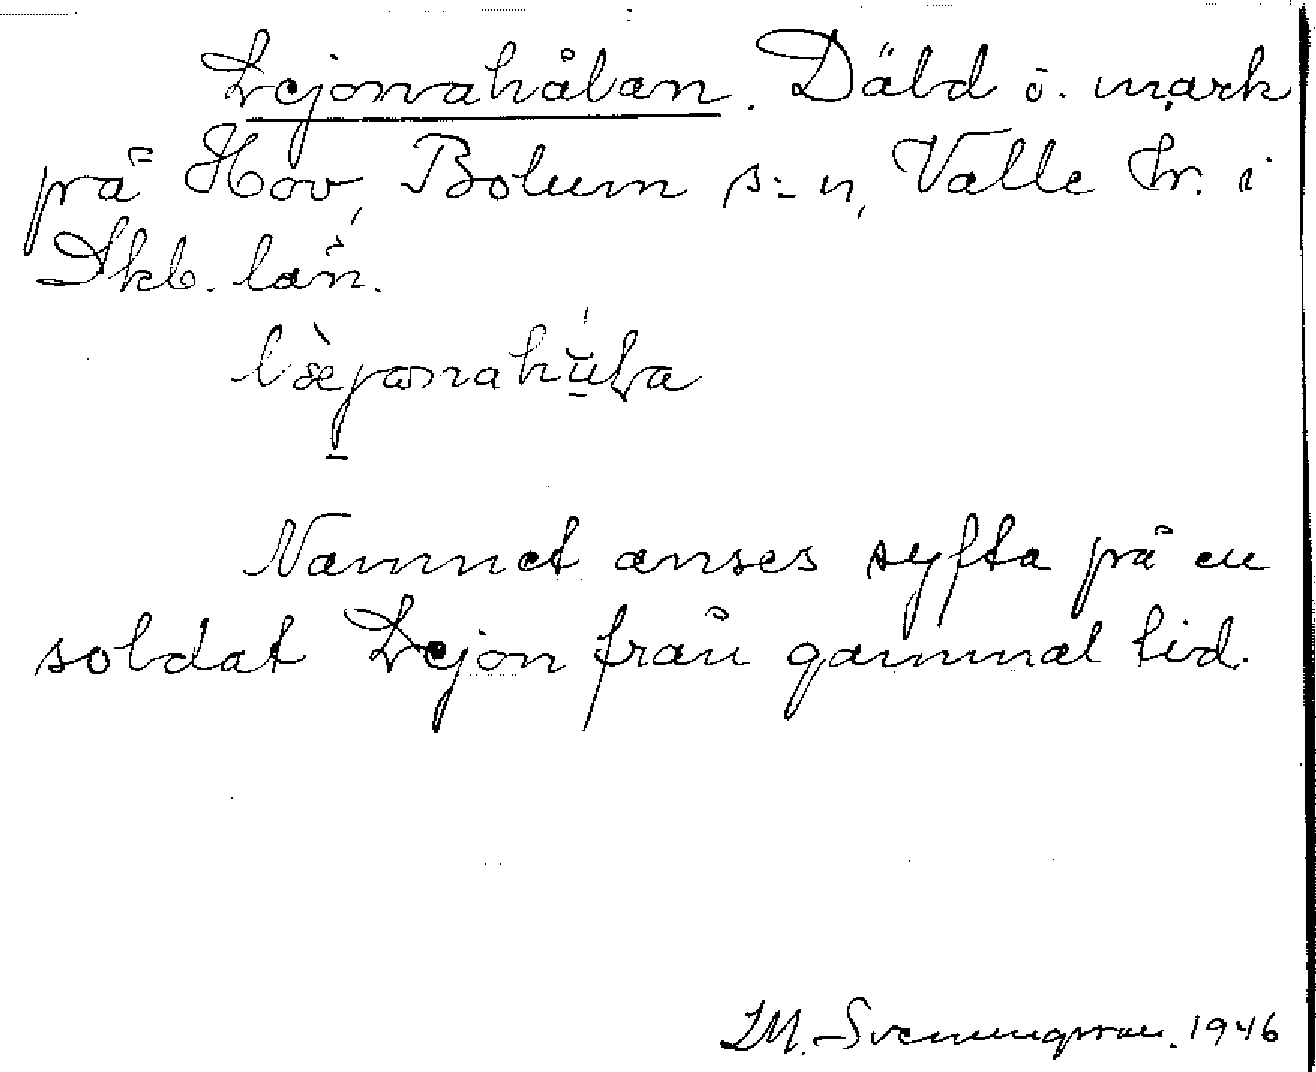 Lejonahålan. Däld ö. mark
på Hov, Bolum s:n, Valle hr. i
Skb. län.
Namnet anses syfta på en
soldat Lejon från gammal tid.
I.M. Svenungsson. 1946